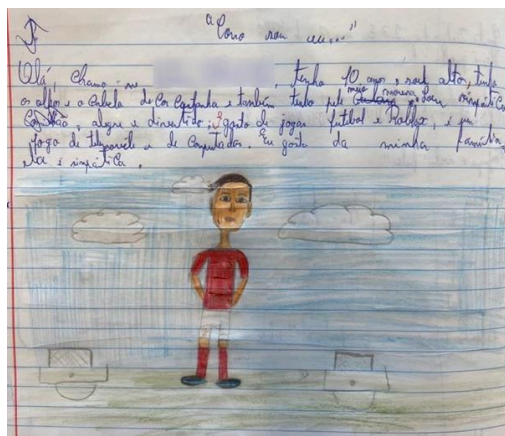 "Como sou eu..."
Olá, chamo-me , tenho 10 anos, sou alto, tenho
os olhos e o cabelo de cor castanha e também tenho pele meia morena. Sou simpático
, alegre e divertido. Gosto de jogar futebol e Roblox, é um
jogo de telemóvel e de computador. Eu gosto da minha família,
ela é simpática.